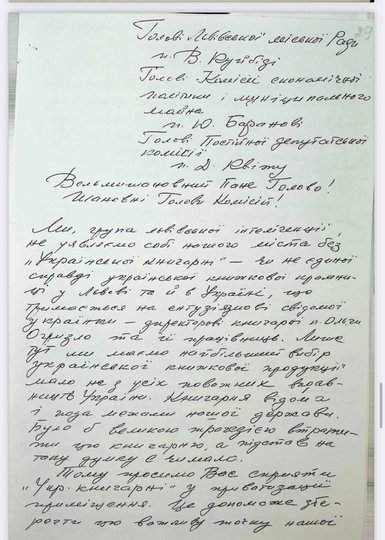 29
Голові Львівської міської Ради
п. В. Куйбіді
Голові Комісії економічної
політики і муніципального
майна
п. Ю. Баранові
Голові Постійної депутатської
комісії
п. Д. Квіту
Вельмишановний Пане Голово!
Шановні Голови Комісій!
Ми, група львівської інтелігенції,
не уявляємо собі нашого міста без
„Української книгарні" – чи не єдиної
справді української книжкової крамни-
ці у Львові та й в Україні, що
тримається на ентузіязмові свідомої
українки – директорки книгарні п. Ольги
Огризло та її працівниць. Лише
тут ми маємо найбільший вибір
української книжкової продукції
мало не з усіх поважних видав-
ництв України. Книгарня відома
і поза межами нашої держави.
Було б великою трагедією втрати-
ти цю книгарню, а підстав на
таку думку є чимало.
Тому просимо Вас сприяти
„Укр. книгарні" у приватизації
приміщення. Це допоможе збе-
регти цю важливу точку нашої